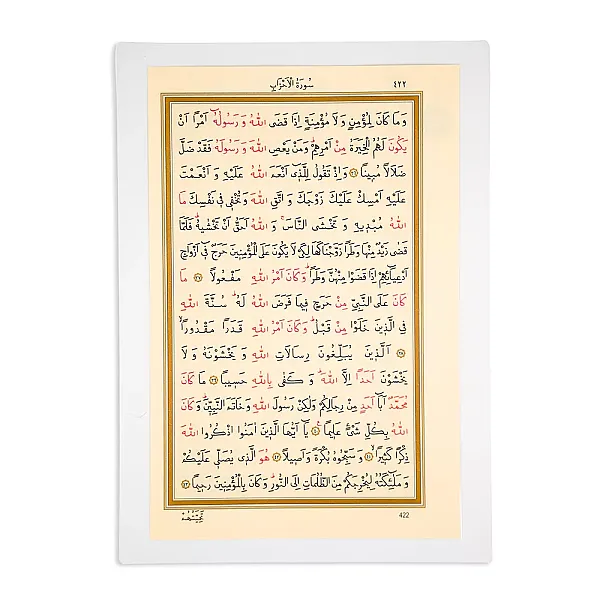 سُورَةُ الْاَحْزَابِ ٤٢٢
وَمَا كَانَ لِمُؤْمِنٍ وَلَا مُؤْمِنَةٍ اِذَا قَضَى اللّٰهُ وَرَسُولُهُٓ اَمْرًا اَنْ
يَكُونَ لَهُمُ الْخِيَرَةُ مِنْ اَمْرِهِمْۜ وَمَنْ يَعْصِ اللّٰهَ وَرَسُولَهُ فَقَدْ ضَلَّ
ضَلَالًا مُبٖينًا ﴿٣٦﴾ وَاِذْ تَقُولُ لِلَّذٖٓي اَنْعَمَ اللّٰهُ عَلَيْهِ وَاَنْعَمْتَ
عَلَيْهِ اَمْسِكْ عَلَيْكَ زَوْجَكَ وَاتَّقِ اللّٰهَ وَتُخْفٖي فٖي نَفْسِكَ مَا
اللّٰهُ مُبْدٖيهِ وَتَخْشَى النَّاسَۚ وَاللّٰهُ اَحَقُّ اَنْ تَخْشٰيهُۜ فَلَمَّا
قَضٰى زَيْدٌ مِنْهَا وَطَرًا زَوَّجْنَاكَهَا لِكَيْ لَا يَكُونَ عَلَى الْمُؤْمِنٖينَ حَرَجٌ فٖٓي اَزْوَاجِ
اَدْعِيَٓائِهِمْ اِذَا قَضَوْا مِنْهُنَّ وَطَرًاۜ وَكَانَ اَمْرُ اللّٰهِ مَفْعُولًا ﴿٣٧﴾ مَا
كَانَ عَلَى النَّبِيِّ مِنْ حَرَجٍ فٖيمَا فَرَضَ اللّٰهُ لَهُۜ سُنَّةَ اللّٰهِ
فِي الَّذٖينَ خَلَوْا مِنْ قَبْلُۜ وَكَانَ اَمْرُ اللّٰهِ قَدَرًا مَقْدُورًاۙ
﴿٣٨﴾ اَلَّذٖينَ يُبَلِّغُونَ رِسَالَاتِ اللّٰهِ وَيَخْشَوْنَهُ وَلَا
يَخْشَوْنَ اَحَدًا اِلَّا اللّٰهَۜ وَكَفٰى بِاللّٰهِ حَسٖيبًا ﴿٣٩﴾ مَا كَانَ
مُحَمَّدٌ اَبَٓا اَحَدٍ مِنْ رِجَالِكُمْ وَلٰكِنْ رَسُولَ اللّٰهِ وَخَاتَمَ النَّبِيّٖنَۜ وَكَانَ
اللّٰهُ بِكُلِّ شَيْءٍ عَلٖيمًا ﴿٤٠﴾ يَٓا اَيُّهَا الَّذٖينَ اٰمَنُوا اذْكُرُوا اللّٰهَ
ذِكْرًا كَثٖيرًاۙ ﴿٤١﴾ وَسَبِّحُوهُ بُكْرَةً وَاَصٖيلًا ﴿٤٢﴾ هُوَ الَّذٖي يُصَلّٖي عَلَيْكُمْ
وَمَلٰٓئِكَتُهُ لِيُخْرِجَكُمْ مِنَ الظُّلُمَاتِ اِلَى النُّورِۜ وَكَانَ بِالْمُؤْمِنٖينَ رَحٖيمًا ﴿٤٣﴾
تَحِيَّتُهُمْ 422